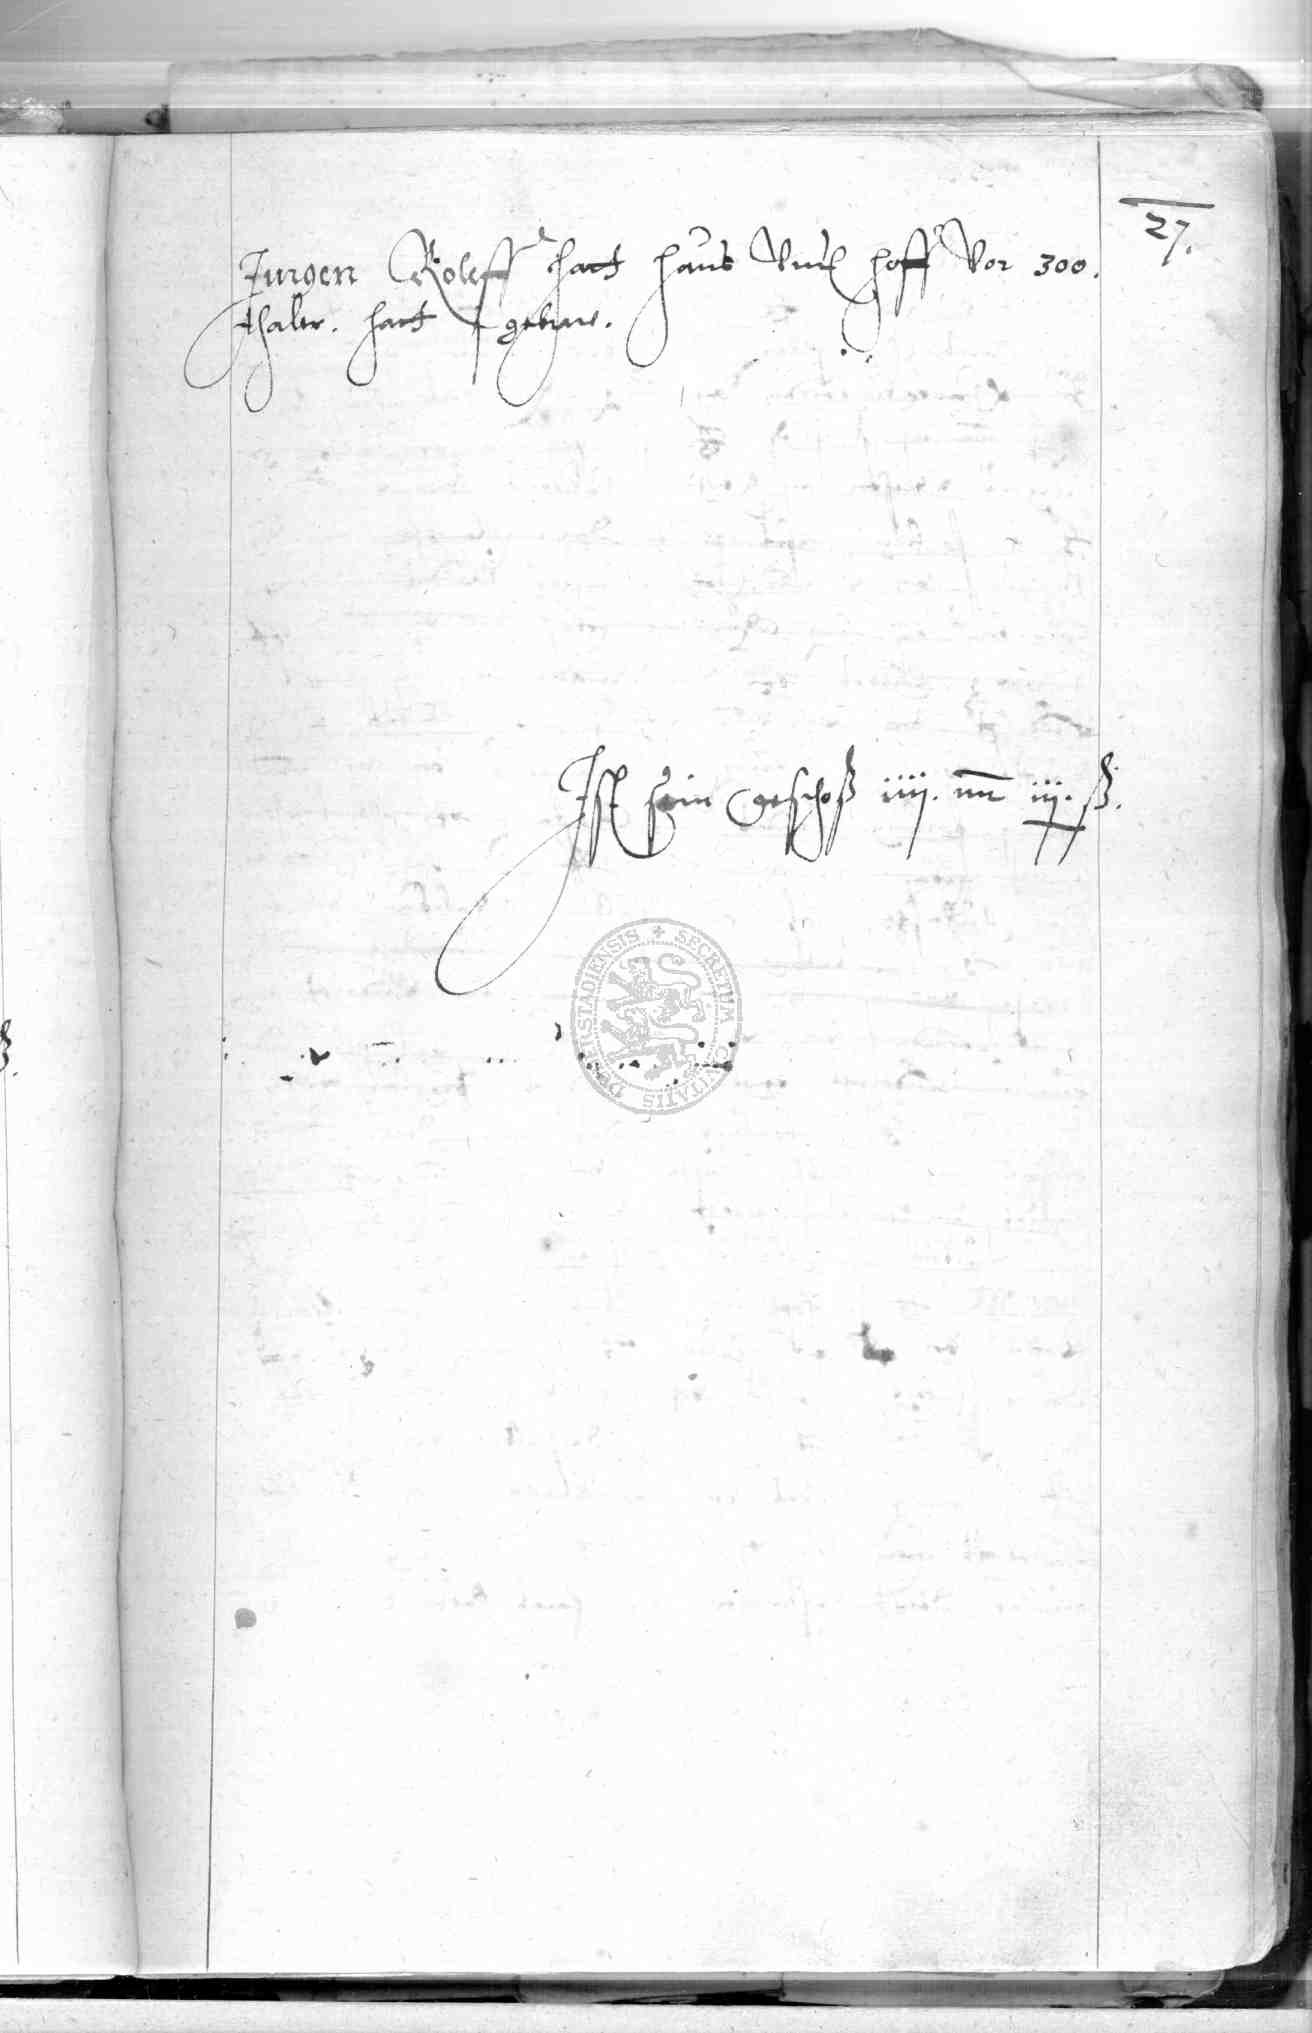 27.
Jurgen Roleff hatt haus Vnd hoff Vor 300.
thaler. hatt gebraw.
Ist sein geschoß iiij. mr iij. ß.
SECRETUM CIVITATIS DUDERSTADIENSIS